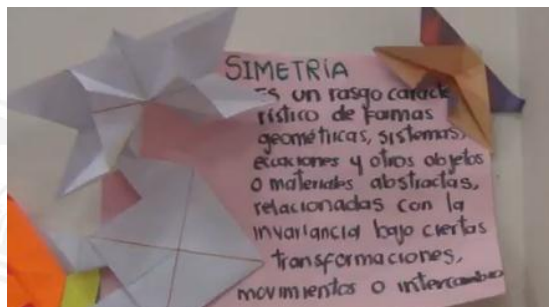 SIMETRÍA
Es un rasgo caracte
rístico de formas
geométricas, sistemas,
ecuaciones y otros objetos
o materiales abstractas,
relacionadas con la
invariancia bajo ciertas
transformaciones,
movimientos o intercambio